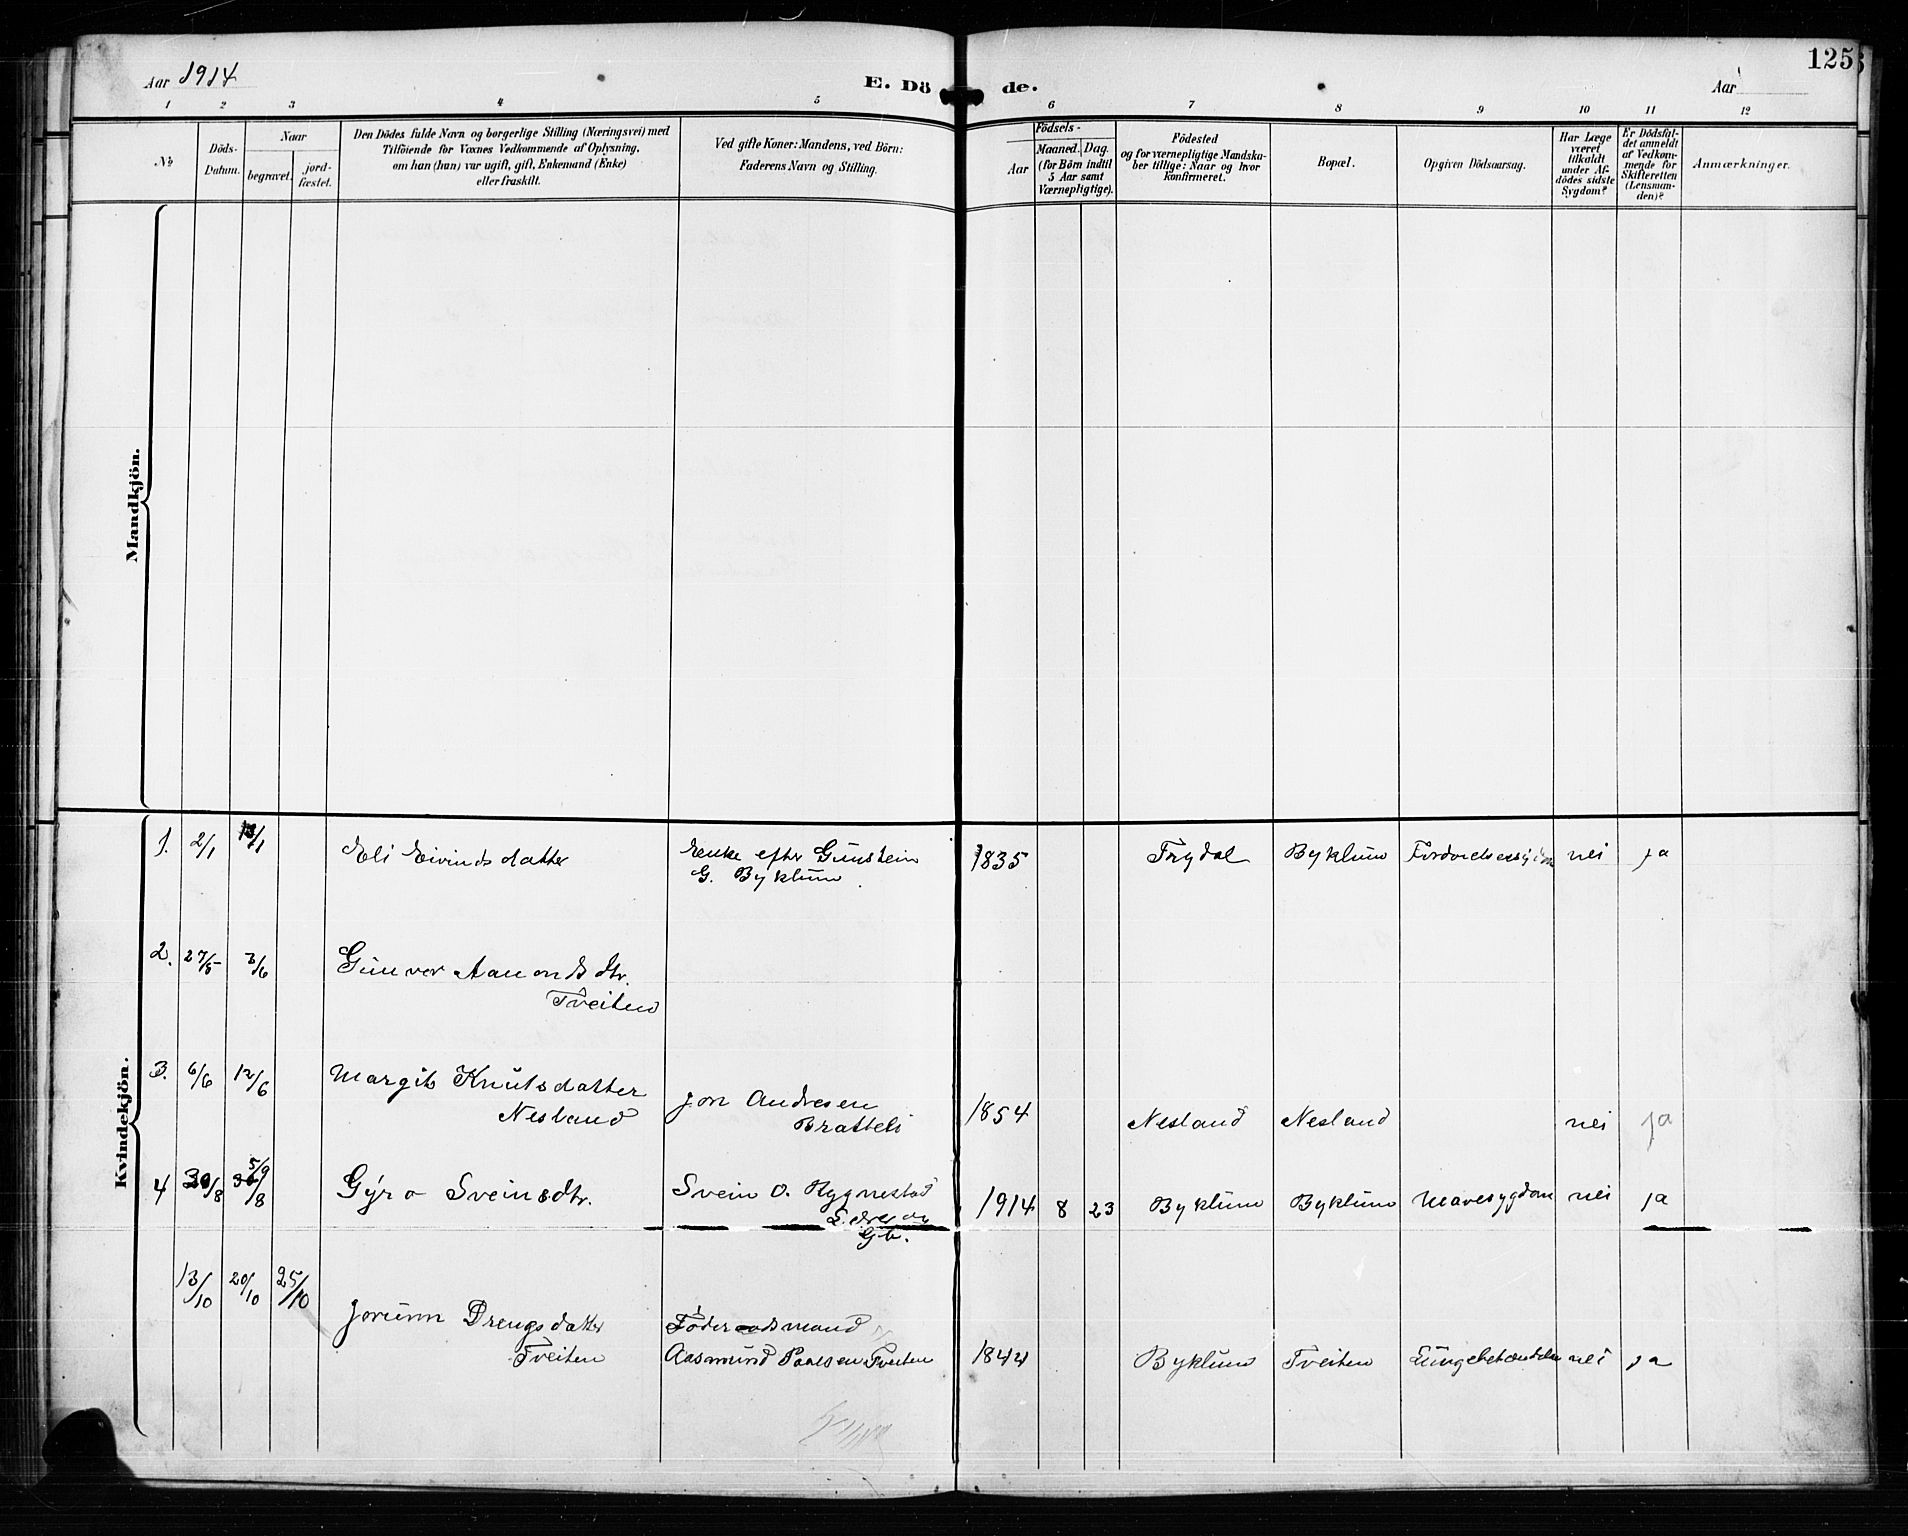 125
Aar 1914 E. Dö de. Aar
1 2 3 4 5 6 7 8 9 10 11 12
No
Döds-
Datum.
Naar
begravet.
jord-
fæstet.
Den Dödes fulde Navn og borgerlige Stilling (Næringsvei) med
Tilföiende for Voxnes Vedkommende af Oplysning,
om han (hun) var ugift, gift, Enkemand (Enke)
eller fraskilt.
Ved gifte Koner: Mandens, ved Börn:
Faderens Navn og Stilling.
Födsels-
Aar
Maaned. Dag.
(for Börn indtil
5 Aar samt
Værnepligtige).
Födested
og for værnepligtige Mandska-
ber tillige: Naar og hvor
konfirmeret.
Bopæl.
Opgiven Dödsaarsag.
Har Læge
været
tilkaldt
under Af-
dödes sidste
Sygdom?
Er Dödsfal-
det anmeldt
af Vedkom-
mende for
Skifteretten
(Lensman-
den)?
Anmærkninger.
Mandkjön.
Kvindekjön.
1. 2/1 Eli Eivindsdatter Enke efter Gunstein 1835 Trydal Byklum nei ja
G. Byklum
2. 27/5 3/6 Gunvor Aamondsdtr.
Tveiten
3. 6/6 12/6 Margit Knutsdatter
Nesland
Jon Andresen
Bratteli
1854 Nesland Nesland nei ja
4 30/8 5/9 Gyro Sveinsdtr. Svein O. Rygnestad 1914 8 23 Byklum Byklum Mavesygdom nei ja
Gb.
13/10 20/10 25/10 Jorunn Drengsdatter
Tveiten
Föderaadsmand
Aasmund Paalsen Tveiten 1844 Byklum Tveiten Lungebetændelse nei ja